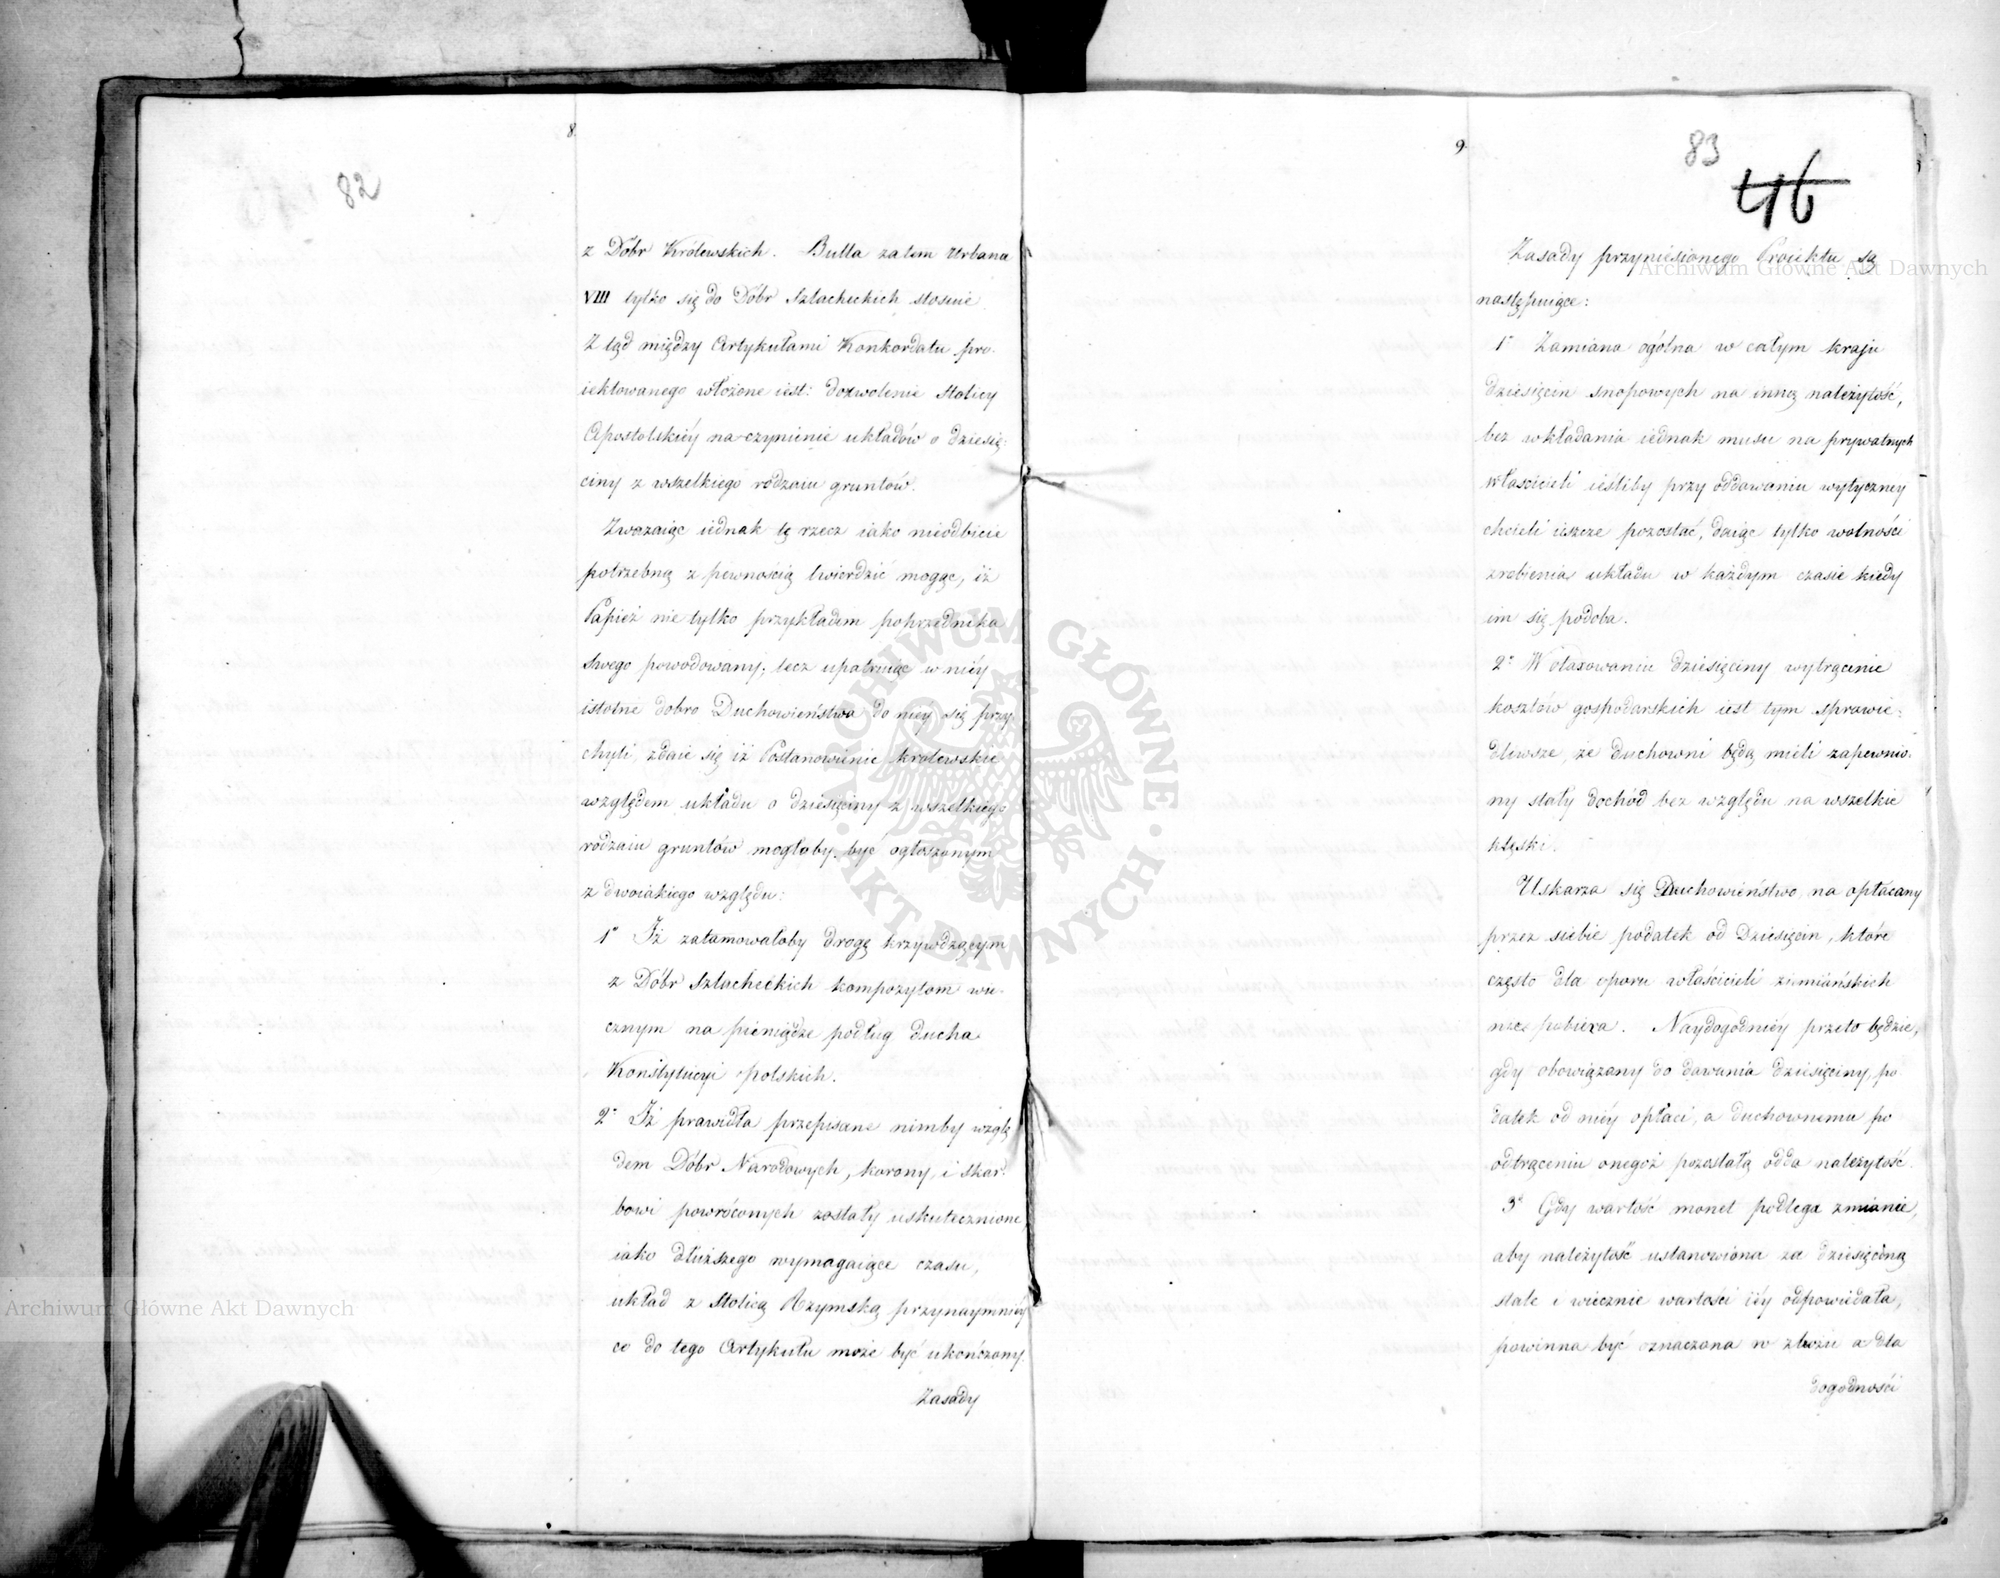 8.
82
z Dóbr Królewskich. Bulla zatem Urbana
VIII tylko się do Dóbr Szlacheckich stosuie.
Ztąd między Artykułami Konkordatu pro-
iektowanego włożone iest: dozwolenie Stolicy
Apostolskiéy na czynienie układów o dziesię-
ciny z wszelkiego rodzaiu gruntów.
Zważaiąc iednak tę rzecz iako nieodbicie
potrzebną z pewnością twierdzić mogąc, iż
Papież nie tylko przykładem poprzednika
swego powodowany; lecz upatruiąc w niéy
istotne dobro Duchowieństwa do niey się przy-
chyli, zdaie się iż Postanowienie królewskie
względem układu o dziesięciny z wszelkiego
rodzaiu gruntów mogłoby być ogłoszonym
z dwoiakiego względu:
1° Iż zatamowałoby drogę krzywdzącym
z Dóbr Szlacheckich kompozytom wie-
cznym na pieniądze podług Ducha
Konstytucyi polskich.
2° Iż prawidła przepisane nimby wzglę
dem Dóbr Narodowych, korony, i skar-
bowi powróconych zostały uskutecznione,
iako dłuższego wymagaiące czasu,
układ z Stolicą Rzymską przynaymniéy
co do tego Artykułu może być ukończony.
Zasady
9.
83
46
Zasady przyniesionego Proiektu są
następuiące:
1° Zamiana ogólna w całym kraju
dziesięcin snopowych na inną należytość,
bez wkładania iednak musu na prywatnych
właścicieli ieśliby przy oddawaniu wytyczney
chcieli ieszcze pozostać, daiąc tylko wolności
zrobienia układu w każdym czasie kiedy
im się podoba.
2° W otaxowaniu dziesięciny wytrącenie
kosztów gospodarskich iest tym sprawie-
dliwsze, że Duchowni będą mieli zapewnio-
ny stały dochód bez względu na wszelkie
klęski.
Uskarza się Duchowieństwo na opłácany
przez siebie podatek od Dziesięcin, które
często dla oporu właścicieli ziemiańskich
nie pobiera. Naydogodniéy przeto będzie,
gdy obowiązany do dawania dziesięciny po
datek od niéy opłaci, a duchownemu po
odtrąceniu onegoż pozostałą odda należytość.
3° Gdy wartość monet podlega zmianie,
aby należytość ustanowiona za dziesięcinę
stale i wiecznie wartości iéy odpowiedała,
powinna być oznaczona w zbożu a dla
dogodności
Archiwum Główne Akt Dawnych
Archiwum Główne Akt Dawnych
ARCHIWUM GŁÓWNE · AKT DAWNYCH ·